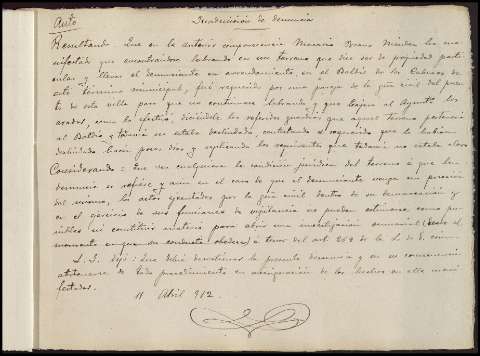 Auto Inadmisión de denuncia
Resultando Que en la anterior comparecencia Macario Bravo Méndez ha ma-
nifestado que encontrándose labrando en un terreno que dice ser de propiedad parti-
cular y lleva el denunciante en arrendamiento, en el Baldío de los Cabreros de
este término municipal, fué requerido por una pareja de la guia civil del pues-
to de esta villa para que no continuase labrando y que trajese al Agente los
arados, como lo efectuó, diciéndole los referidos guardias que aquel terreno pertenecía
al Baldío y todavía no estaba deslindado, contestando el requerido que lo habían
deslindado hacía pocos días y replicando los requirentes que todavía no estaba claro
Considerando: Que sea cualquiera la condición jurídica del terreno á que la
denuncia se refiere y aun en el caso de que el denunciante tenga en precario
del mismo, los actos ejecutados por la guia civil dentro de su demarcación y
en el ejercicio de sus funciones de vigilancia no pueden estimarse como pu-
nibles ni constituir materia para abrir una investigación sumarial (desde el
momento en que su conducta obedece) á tenor del art. 269 de la L. de E. crim.
S. S. dijo: Que debía desestimar la presente denuncia y en su consecuencia
abstenerse de todo procedimiento en averiguación de los hechos en ella mani-
festados.
11 Abril 912.